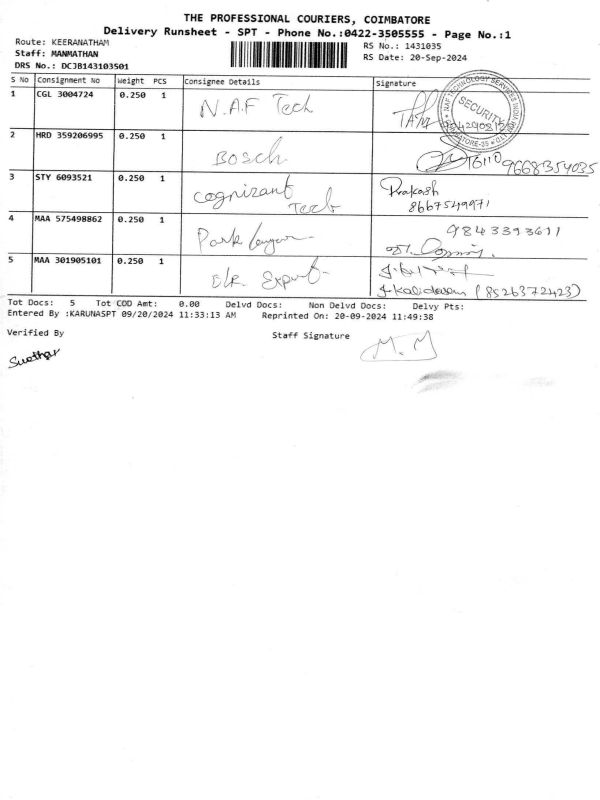 THE PROFESSIONAL COURIERS, COIMBATORE
Delivery Runsheet - SPT - Phone No.:0422-3505555 - Page No.:1
Route: KEERANATHAM
RS No.: 1431035
Staff: MANMATHAN
RS Date: 20-Sep-2024
DRS No.: DCJB143103501
S No Consignment No Weight PCS Consignee Details Signature
1 CGL 3004724 0.250 1 N.A.F Tech
SECURITY
2 HRD 359206995 0.250 1 Bosch 9668354035
3 STY 6093521 0.250 1 Cognizant Tech Prakash
8667549971
4 MAA 575498862 0.250 1 Park 9843393611
5 MAA 301905101 0.250 1 Export
J.Kalidasan (8526372423)
Tot Docs: 5 Tot COD Amt: 0.00 Delvd Docs: Non Delvd Docs: Delvy Pts:
Entered By :KARUNASPT 09/20/2024 11:33:13 AM Reprinted On: 20-09-2024 11:49:38
Verified By Staff Signature
M. M